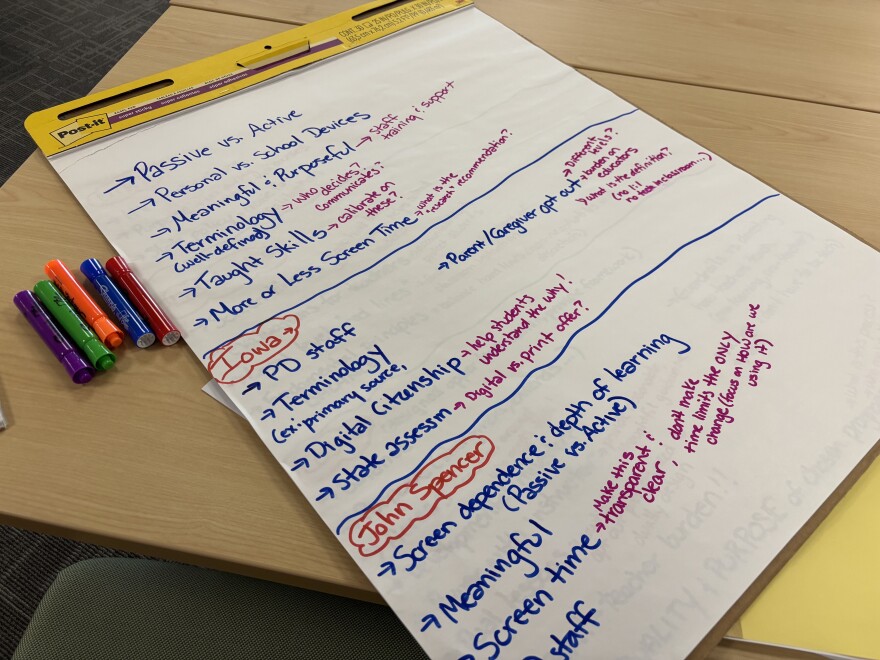 Post-it
super sticky
→ Passive vs. Active
→ Personal vs. School Devices
→ Meaningful & Purposeful → staff
training & support
→ Terminology → who decides?
(well-defined) communicates?
→ Taught Skills → calibrate on
these?
→ More or Less Screen Time → what is the
"research" recommendation?
→ Parent/Caregiver opt out → Different
levels?
→ burden on
educators
→ what is the definition?
(no 1:1
no tech in classroom...)
Iowa →
→ PD staff
→ Terminology
(ex: primary source,
→ Digital Citizenship → help students
understand the why!
→ State assessm → Digital vs. print offer?
John Spencer
→ Screen dependence & depth of learning
(Passive vs. Active)
→ Meaningful
→ Screen time → Make this
transparent &
clear, don't make
time limits the ONLY
change (focus on HOW are we
using it)
staff